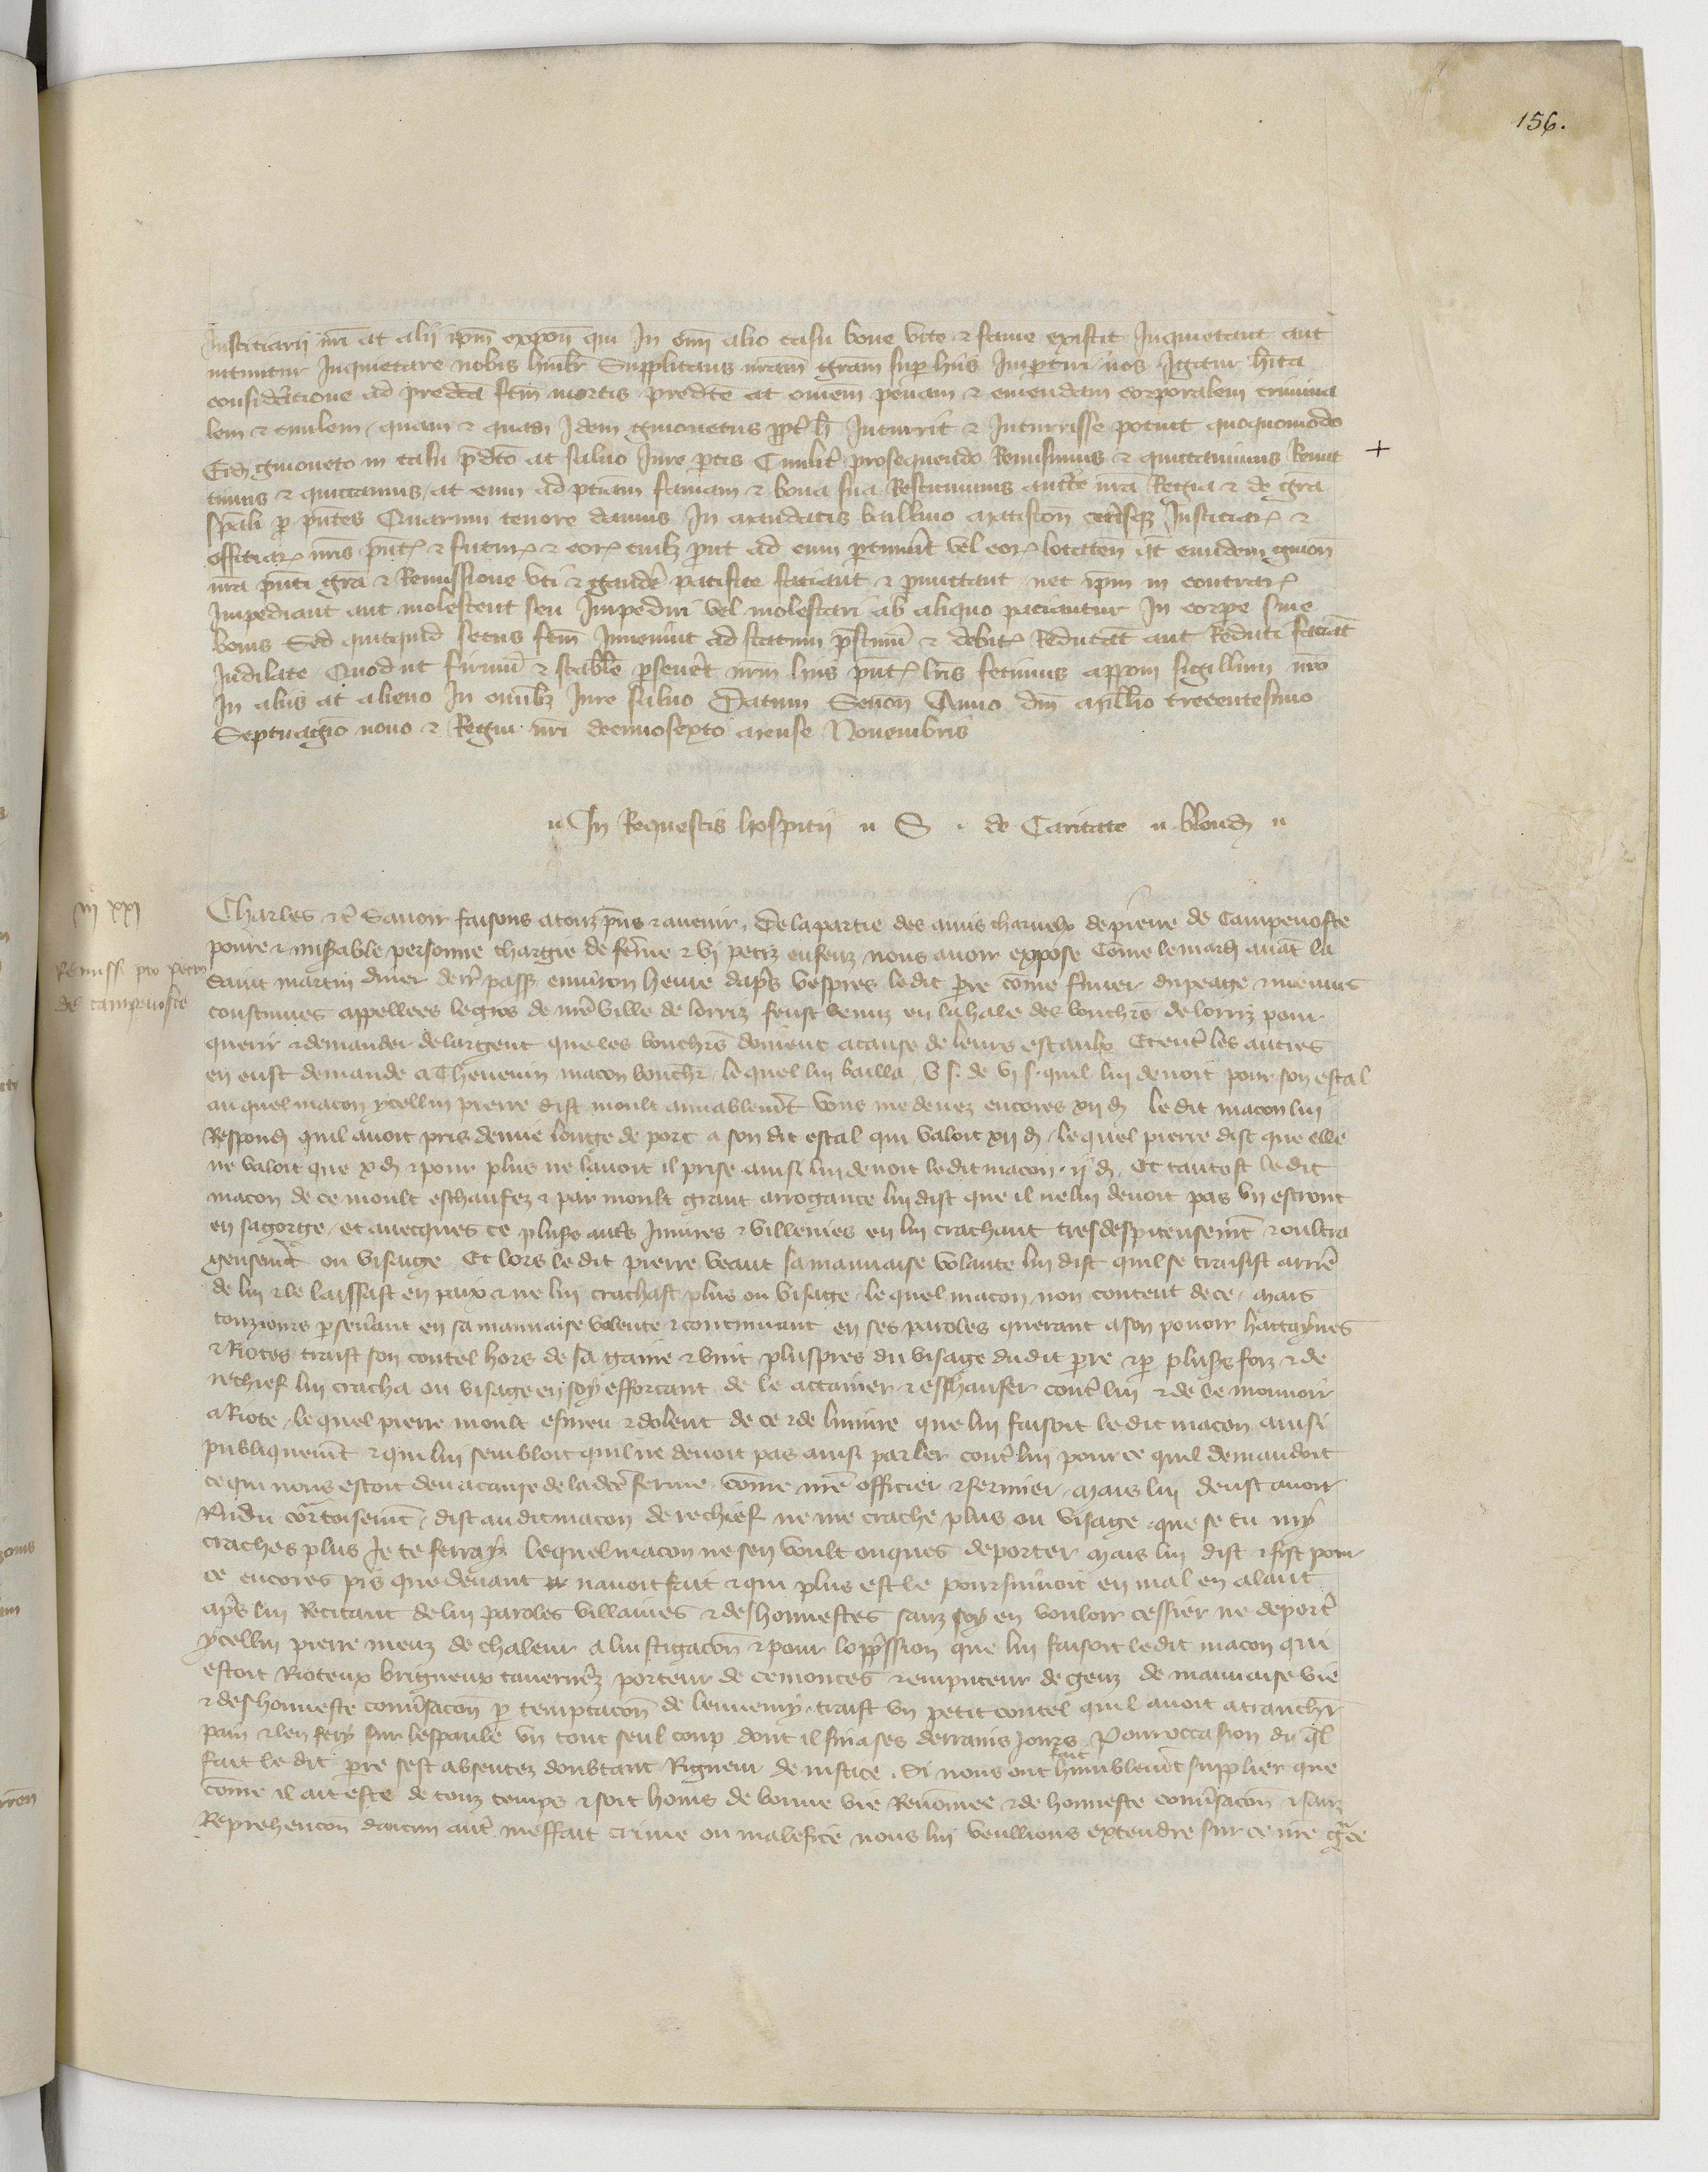 156.
Justiciarij nr̃i at alij ip̃m expon̄ qui In om̄i alio casu bone vite ⁊ fame existit Inquietant aut
nituntur Inquietare nobis hmil̄r Supplicans nr̃am gr̃am super hijs Impertiri nos Igitur hita
consideracione ad predc̃a fc̃m mortis predc̃e at omnem penam ⁊ emendam corporalem crimina
lem ⁊ ciuilem quam ⁊ quas Idem guionetus propt̃ h̄ Incurrit ⁊ Incurrisse potuit quoquomodo
Eid̄ guioneto in casu p̄dc̃o at saluo Jure partis Ciuilit̃ prosequendo Remisimus ⁊ quictauimus Remit
timus ⁊ quictamus at eum ad pr̃iam famam ⁊ bona sua Restituimus auctt̃e nr̃a Regia ⁊ de gr̃a
sp̃ali per pñtes Quarum tenore damus In mandatis baillivo matiscon̄ ceterisque Justiciar̃ ⁊
officiar̃ nr̃is pñt̃ ⁊ futur̃ ⁊ eor̃ cuilz prout ad eum pertinuit̃ vel eor̃ locaten̄ qt̃ eundem guion̄
nr̃a pñti gr̃a ⁊ Remissione vti ⁊ gaudẽ pacifice faciant ⁊ permittant nec ip̃m in contrar̃
Impediant aut molestent seu Impediri vel molestari ab aliquo paciantur In corpe siue
bonis Sed quicquid secus fc̃m Inuenirint ad statum p̄stinũ ⁊ debit̃ Reducãt aut Reduci faciãt
Indilate Quod ut firmũ ⁊ stabile perseueret nr̃m hijs pñt̃ lr̃is fecimus apponi sigillum nr̃o
In alijs at alieno In omĩbz Jure saluo Datum Senon̄ Anno dñi mill̃io trecentesimo
Septuagiõ nono ⁊ Regni nr̃i decimosexto mense Nouembris
In Requestis hospitij S. de Caritate blond̄
iij xxj
Remiss. pro petro
de campenoste
Charles ⁊c̃ Sauoir faisons a touz p̃ns ⁊ auenir De la partie des amis charnelx de pierre de Campenoste
poure ⁊ mis̃able personne chargie de fẽme ⁊ vj petiz enfenz nous auoir expose Cõme le mard̄ auãt la
saint martin diuer derr̃ pass̄ enuiron heure dap̃s vespres le dit p̃re cõme fermier du peage ⁊ menuus
coustumes appellees le gros de nr̃e ville de lorriz feust venuz en la hale des bouchers de lorriz pour
querir ⁊ demander de largent que les bouchers doiuent a cause de leurs estaulx Et ent̃ les autres
en eust demande a Theuenin macon boucher le quel lui bailla v s. de vj s. quil lui deuoit pour son estal
au quel macon ycellui pierre dist moult amiablemẽt vous me deuez encores xij d̄ le dit macon lui
Respond̄ quil auoit pris de une longe de porc a son dit estal qui valoit xij d̄ le quel pierre dist que elle
ne valoit que x d̄ ⁊ pour plus ne lauoit il prise ainsi lui deuoit le dit macon ij d̄ Et tantost le dit
macon de ce moult eschaufez ⁊ par moult grant arrogance lui dist que il ne lui deuoit pas vn estront
en sa gorge et auecques ce plus̃s auts̃ Jniures ⁊ villenies en lui crachant tres despiteusemẽt ⁊ oultra
geusemẽt ou visaige Et lors le dit pierre veant sa mauuaise volante lui dist quil se traisist arrie
de lui ⁊ le laissast en paix ⁊ ne lui crachast plus ou visage le quel macon non content de ce mais
touzjours perseuerant en sa mauuaise volente ⁊ continuant en ses paroles querant a son pouoir hattaynes
⁊ Riotes traist son coutel hors de sa gaine ⁊ vint plus pres du visage du dit p̃re ⁊ p̃ plus̃s foiz ⁊ de
rechief lui cracha ou visage en soy efforcant de le actainer ⁊ eschaufer cont̃ lui ⁊ de le mouuoir
a Riote le quel pierre moult esmeu ⁊ dolent de ce ⁊ de liniure que lui faisoit le dit macon ainsi
publiquemẽt ⁊ qui lui sembloit quil ne deuoit pas ainsi parler cont̃ lui pour ce quil demandoit
ce qui nous estoit deu a cause de la dc̃e ferme cõme nr̃e officier ⁊ fermier mais lui deust auoir
Rñdu cõrtoisemẽt dist au dit macon de rechief ne me crache plus ou visage que se tu my
craches plus Je te ferray le quel macon ne sen voult onques deporter mais lui dist ⁊ fist pour
ce encores pis que deuant nauoit fait ⁊ qui plus est le poursuiuoit en mal en alant
apr̃s lui Recitant de lui paroles villaines ⁊ deshonnestes sanz soy en vouloir cessier ne deport̃
ycellui pierre meuz de chaleur a linstigacõn ⁊ pour loppr̃ssion que lui faisoit le dit macon qui
estoit Rioteux brigueux tauernerez porteur de cemonces ⁊ emputeur de genz de mauuaise vie
⁊ deshonneste conũsacõn p̃ temptacõn de lennemy traist vn petit coutel quil auoit a tranchr̃
pain ⁊ len fery sur lespaule vn tout seul coup dont il fina ses derrains Jours Pour occasion du ql̃
fait le dit p̃re sest absentez doubtant Rigueur de iustice. Si nous ont fait humblemẽt supplier que
cõme il ait este de touz temps ⁊ soit homs de bonne vie Renõmee ⁊ de honneste conũsacõn ⁊ sanz
Reprehencon daucun aut̃ meffait crime ou malefice nous lui veullions extendre sur ce nr̃e gr̃ce